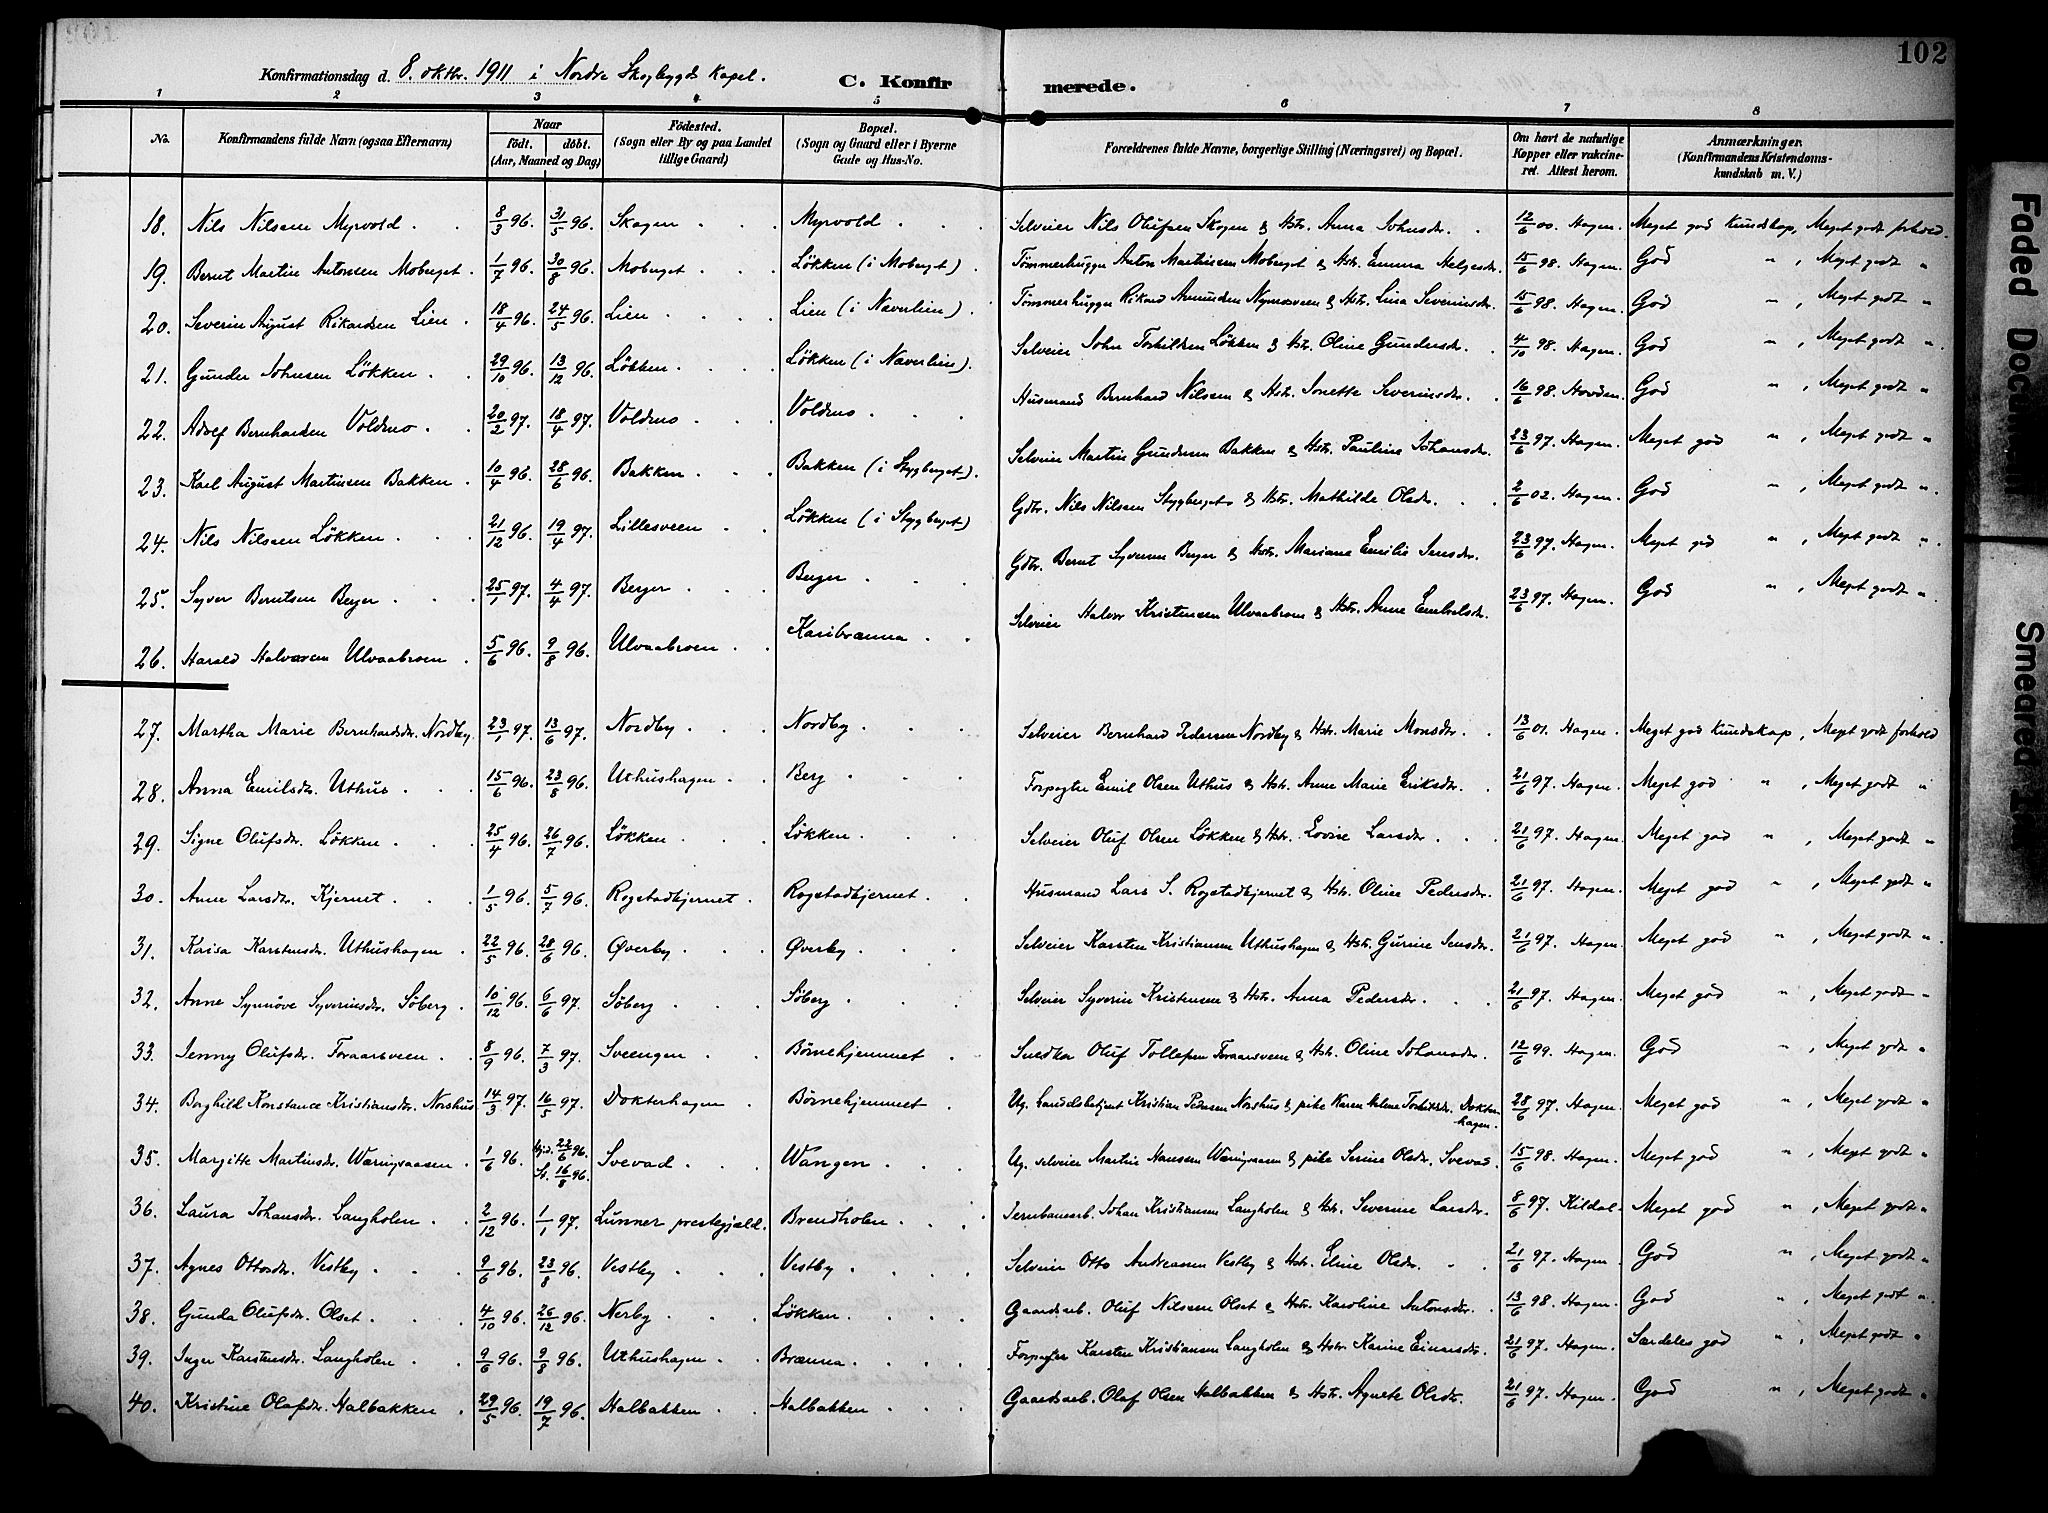 102
Konfirmationsdag d. 8. oktbr. 1911 i Nordre Skogbygds Kapel.
C. Konfirmerede.
1 2 3 4 5 6 7 8
No. | Konfirmandens fulde Navn (ogsaa Efternavn) | Naar født. døbt. (Aar, Maaned og Dag) | Fødested. (Sogn eller By og paa Landet tillige Gaard) | Bopæl. (Sogn og Gaard eller i Byerne Gade og Hus-No. | Forældrenes fulde Navne, borgerlige Stilling (Næringsvei) og Bopæl. | Om havt de naturlige Kopper eller vakcineret. Attest herom. | Anmærkninger. (Konfirmandens Kristendomskundskab m. V.)
18. Nils Nilsen Myrvold 8/3 96. 31/5 96. Skogen Myrvold Selveier Nils Olufsen Skogen & Hstr. Anna Johnsdr. 12/6 00. Hagen. Meget god Kundskap, Meget godt forhold.
19. Bernt Martin Antonsen Moberget 1/7 96. 30/8 96. Moberget Løkken (i Moberget) Tømmerhugger Anton Martinsen Moberget & Hstr. Emma Helgesdr. 15/6 98. Hagen. God " , Meget godt "
20. Severin August Rikardsen Lien 18/4 96. 24/5 96. Lien Lien (i Næverlien) Tømmerhugger Rikard Amundsen Nymosveen & Hstr. Lina Severinsdr. 15/6 98. Hagen. God " , Meget godt "
21. Gunder Johnsen Løkken 29/10 96. 13/12 96. Løkken Løkken (i Næverlien). Selveier John Torkildsen Løkken & Hstr. Oline Gundersdr. 4/10 98. Hagen. God " , Meget godt "
22. Adolf Bernhardsen Voldmo 20/2 97. 18/4 97. Voldmo Voldmo Husmand Bernhard Nilsen & Hstr. Jonette Severinsdr. 16/6 98. Hovden. God " , Meget godt "
23. Karl August Martinsen Bakken 10/4 96. 28/6 96. Bakken Bakken (i Stygberget). Selveier Martin Gundersen Bakken & Hstr. Pauline Johansdr. 23/6 97. Hagen. Meget god " , Meget godt "
24. Nils Nilsen Løkken 21/12 96. 19/4 97. Lillesveen Løkken (i Stygberget) Gdbr. Nils Nilsen Stygberget & Hstr. Mathilde Olsdr. 2/6 02. Hagen. God " , Meget godt "
25. Syver Berntsen Berger 25/1 97. 4/4 97. Berger Berger Gdbr. Bernt Syversen Berger & Hstr. Mariane Emilie Jensdr. 23/6 97. Hagen. Meget god " , Meget godt "
26. Harald Halvorsen Ulvaabroen 5/6 96. 9/8 96. Ulvaabroen Karibrænna Selveier Halvor Kristensen Ulvaabroen & Hstr. Anne Embretsdr. 23/6 97. Hagen. God " , Meget godt "
27. Martha Marie Bernhardsdr. Nordby 23/1 97. 13/6 97. Nordby Nordby Selveier Bernhard Pedersen Nordby & Hstr. Marie Monsdr. 13/6 01. Hagen. Meget god Kundskap, Meget godt forhold
28. Anna Emilsdr. Uthus 15/6 96. 23/8 96. Uthushagen Berg Forpagter Emil Olsen Uthus & Hstr. Anne Marie Eriksdr. 21/6 97. Hagen. Meget god " , Meget godt "
29. Signe Olufsdr. Løkken 25/4 96. 26/7 96. Løkken Løkken Selveier Oluf Olsen Løkken & Hstr. Lovise Larsdr. 21/6 97. Hagen. Meget god " , Meget godt "
30. Anne Larsdr. Kjernet 1/5 96. 5/7 96. Rogstadkjernet Rogstadkjernet Husmand Lars S. Rogstadkjernet & Hstr. Oline Pedersdr. 21/6 97. Hagen. Meget god " , Meget godt "
31. Kaisa Karstensdr. Uthushagen 22/5 96. 28/6 96. Øverby Øverby Selveier Karsten Kristiansen Uthushagen & Hstr. Gurine Jensdr. 21/6 97. Hagen. Meget god " , Meget godt "
32. Anne Synnøve Syverinsdr. Søberg 10/12 96. 6/6 97. Søberg Søberg Selveier Syverin Kristensen & Hstr. Anna Pedersdr. 21/6 97. Hagen. Meget god " , Meget godt "
33. Jenny Olufsdr. Foraarsveen 8/9 96. 7/3 97. Sveengen Børnehjemmet Snedker Oluf Tollefsen Foraarsveen & Hstr. Oline Johansdr. 12/6 99. Hagen. God " , Meget godt "
34. Borghild Konstance Kristiansdr. Norshus 14/3 97. 16/5 97. Dokterhagen Børnehjemmet Ug. Landhandelsbetjent Kristian Pedersen Norshus & pike Karen Helene Torkildsdr. Dokterhagen. 28/6 97. Hagen. Meget god " , Meget godt "
35. Margitte Martinsdr. Wæringsaasen 1/6 96. Hjd. 22/6 96. St. 16/8 96. Svevad Wangen Ug. selveier Martin Hansen Wæringsaasen & pike Serine Olsdr. Svevad. 15/6 98. Hagen. Meget god " , Meget godt "
36. Laura Johansdr. Langholen 2/12 96. 1/1 97. Lunner prestegjeld. Brendholen Jernbanearb. Johan Kristiansen Langholen & Hstr. Severine Larsdr. 8/6 97. Kildal. Meget god " , Meget godt "
37. Agnes Ottosdr. Vestby 9/6 96. 23/8 96. Vestby Vestby Selveier Otto Andreassen Vestby & Hstr. Eline Olsdr. 21/6 97. Hagen. God " , Meget godt "
38. Gunda Olufsdr. Olset 4/10 96. 26/12 96. Nerby Løkken Gaardsarb. Oluf Nilsen Olset & Hstr. Karoline Antonsdr. 13/6 98. Hagen. God " , Meget godt "
39. Inger Karstensdr. Langholen 9/6 96. 9/8 96. Uthushagen Brænna Forpagter Karsten Kristiansen Langholen & Hstr. Karine Einarsdr. 21/6 97. Hagen. Særdeles god " , Meget godt "
40. Kristine Olafsdr. Halbakken 29/5 96. 19/7 96. Halbakken Halbakken Gaardsarb. Olaf Olsen Halbakken & Hstr. Agnete Olsdr. 21/6 97. Hagen. God " , Meget godt "
Faded Document
Smeared Ink